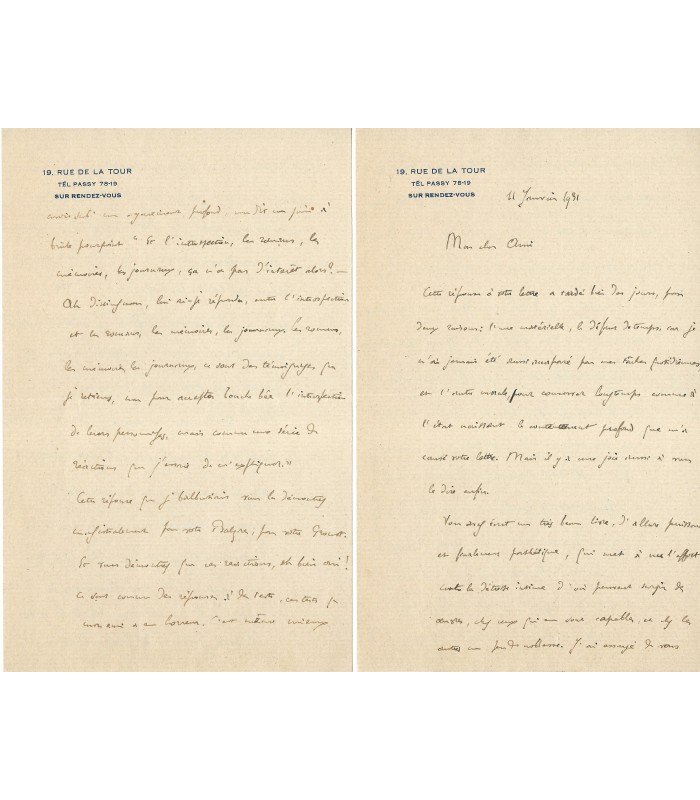 19. RUE DE LA TOUR
TÉL PASSY 78-19
SUR RENDEZ-VOUS
un argument profond, un
brûle pourpoint " Et l'introspection, les romans, les
mémoires, les journaux, ça n'a pas d'intérêt alors? —
Ah distinguons, lui ai-je répondu, entre l'introspection
et les romans, les mémoires, les journaux, les romans,
les mémoires, les journaux, ce sont des témoignages que
je retiens, non pour accepter bouche bée l'introspection
de leurs personnages, mais comme une série de
réactions que j'essaie de m'expliquer."
Cette réponse que je balbutiais vous la démontrez
par votre Balzac, par votre Proust.
Et vous démontrez que ces réactions, eh bien oui!
ce sont comme des réponses à des tests,
mon ami a en horreur. C'est même mieux
19. RUE DE LA TOUR
TÉL PASSY 78-19
SUR RENDEZ-VOUS
11 Janvier 1931
Mon cher Ami
Cette réponse à votre lettre a tardé bien des jours, pour
deux raisons: l'une matérielle, le défaut de temps, car je
n'ai jamais été aussi accaparé par mes tâches quotidiennes
et l'autre morale, pour conserver longtemps comme à
l'état naissant le contentement profond que m'a
causé votre lettre. Mais il y a une joie aussi à vous
le dire enfin.
Vous avez écrit un très beau livre, d'allure puissante
et parfois pathétique, qui met à nu l'effort
contre la détresse intime d'où peuvent surgir des
œuvres, chez ceux qui en sont capables, et chez les
autres un peu de noblesse. J'ai essayé de vous